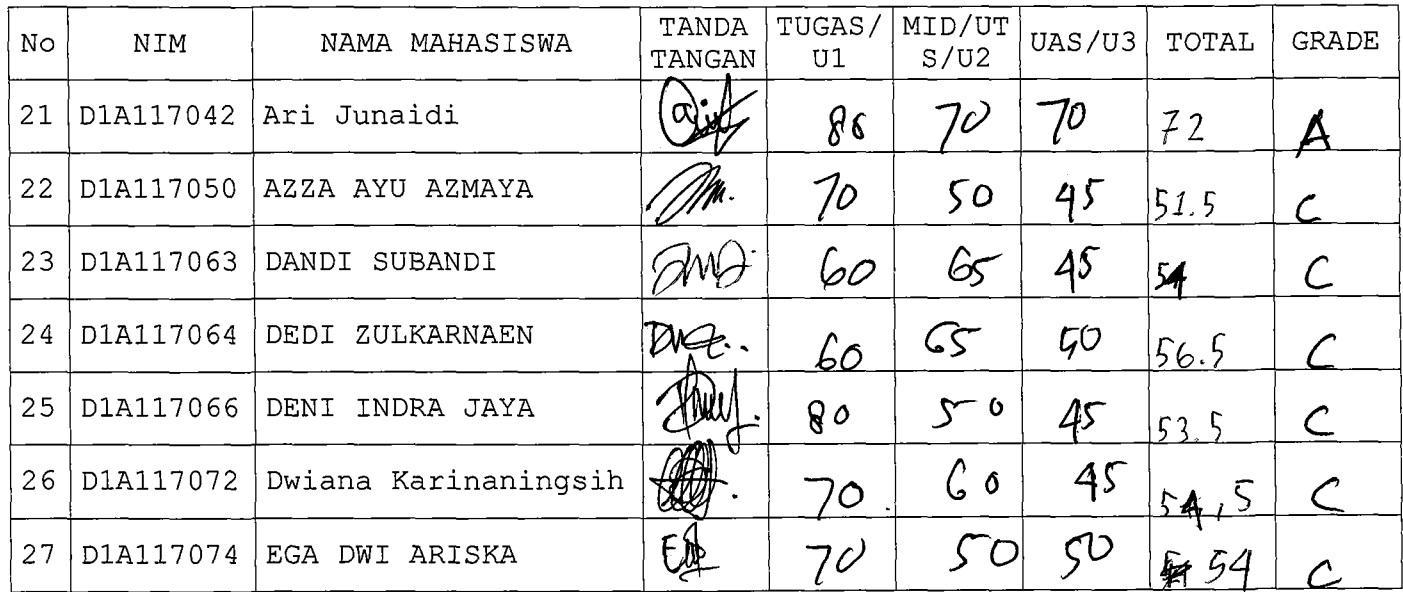 No NIM NAMA MAHASISWA TANDA TANGAN TUGAS/U1 MID/UTS/U2 UAS/U3 TOTAL GRADE
21 D1A117042 Ari Junaidi 86 70 70 72 A
22 D1A117050 AZZA AYU AZMAYA 70 50 45 51.5 C
23 D1A117063 DANDI SUBANDI 60 65 45 54 C
24 D1A117064 DEDI ZULKARNAEN 60 65 50 56.5 C
25 D1A117066 DENI INDRA JAYA 80 50 45 53.5 C
26 D1A117072 Dwiana Karinaningsih 70 60 45 54,5 C
27 D1A117074 EGA DWI ARISKA 70 50 50 54 C